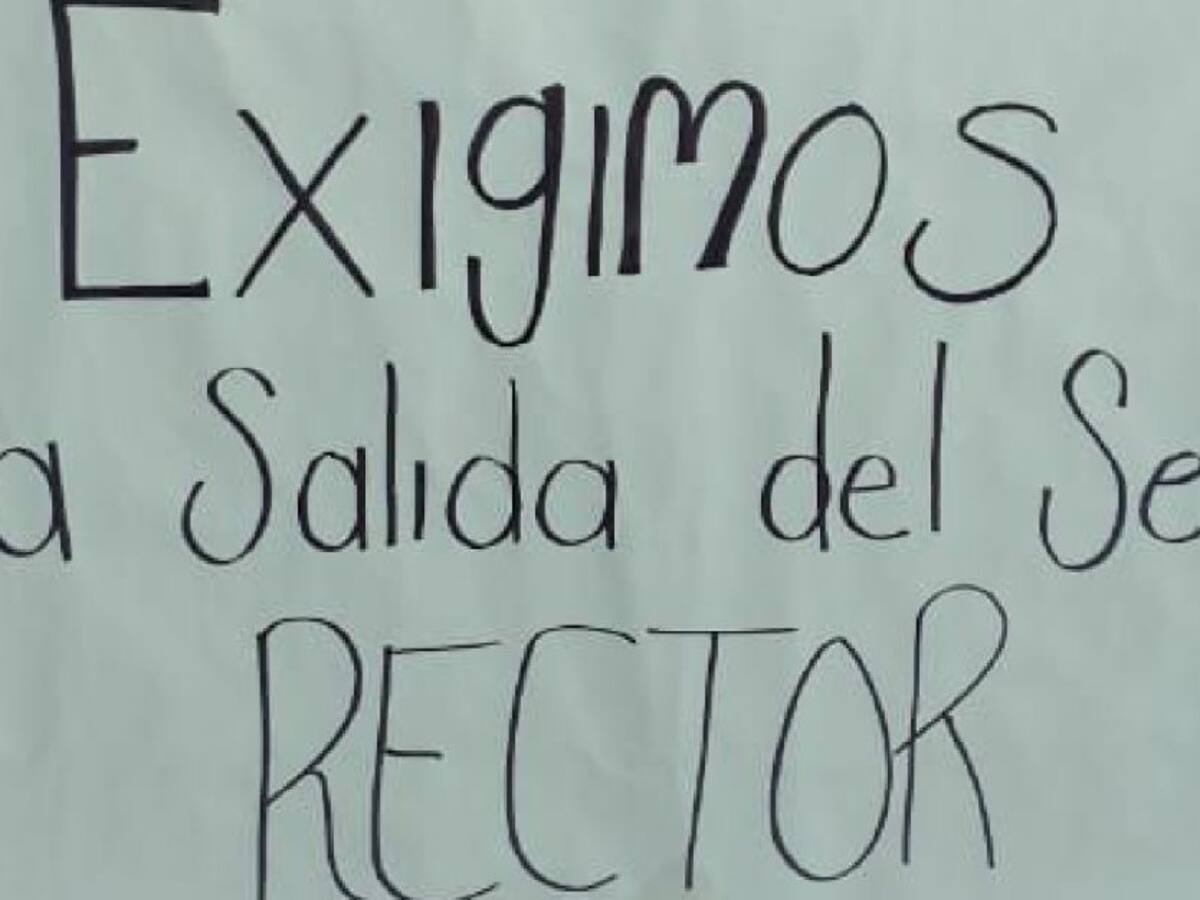 Exigimos
a Salida del Se
RECTOR